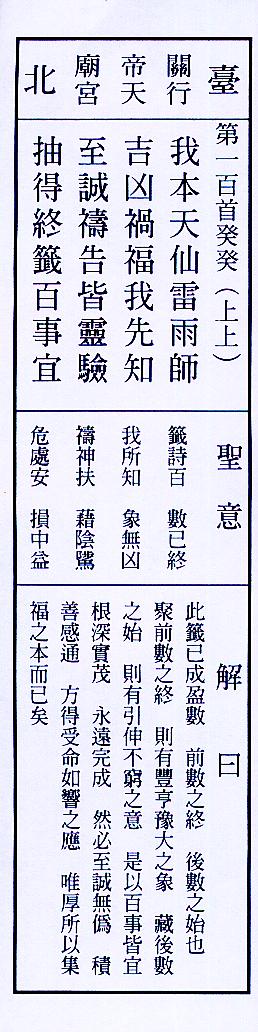 臺北
關行
帝天
廟宮
第一百首癸癸（上上）
我本天仙雷雨師
吉凶禍福我先知
至誠禱告皆靈驗
抽得終籤百事宜
聖意
籤詩百　數已終
我所知　象無凶
禱神扶　藉陰騭
危處安　損中益
解曰
此籤已成盈數　前數之終　後數之始也
聚前數之終　則有豐亨豫大之象　藏後數
之始　則有引伸不窮之意　是以百事皆宜
根深實茂　永遠完成　然必至誠無偽　積
善感通　方得受命如響之應　唯厚所以集
福之本而已矣